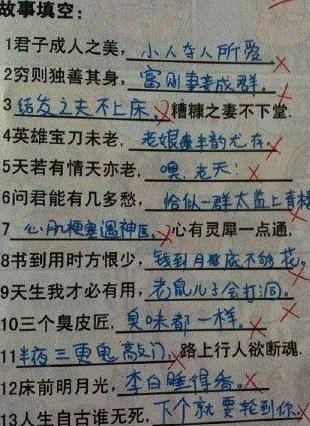 故事填空:
1君子成人之美,小人夺人所爱
2穷则独善其身,富则妻妾成群.
3结发之夫不上床,糟糠之妻不下堂.
4英雄宝刀未老,老娘风韵尤存.
5天若有情天亦老,噢,老天:
6问君能有几多愁,恰似一群太监上青楼
7心肌梗塞遇神医,心有灵犀一点通,
8书到用时方恨少,钱到月底不够花。
9天生我才必有用,老鼠儿子会打洞。
10三个臭皮匠,臭味都一样。
11半夜三更鬼敲门,路上行人欲断魂.
12床前明月光,李白睡得香。
13人生自古谁无死,下个就要轮到你.